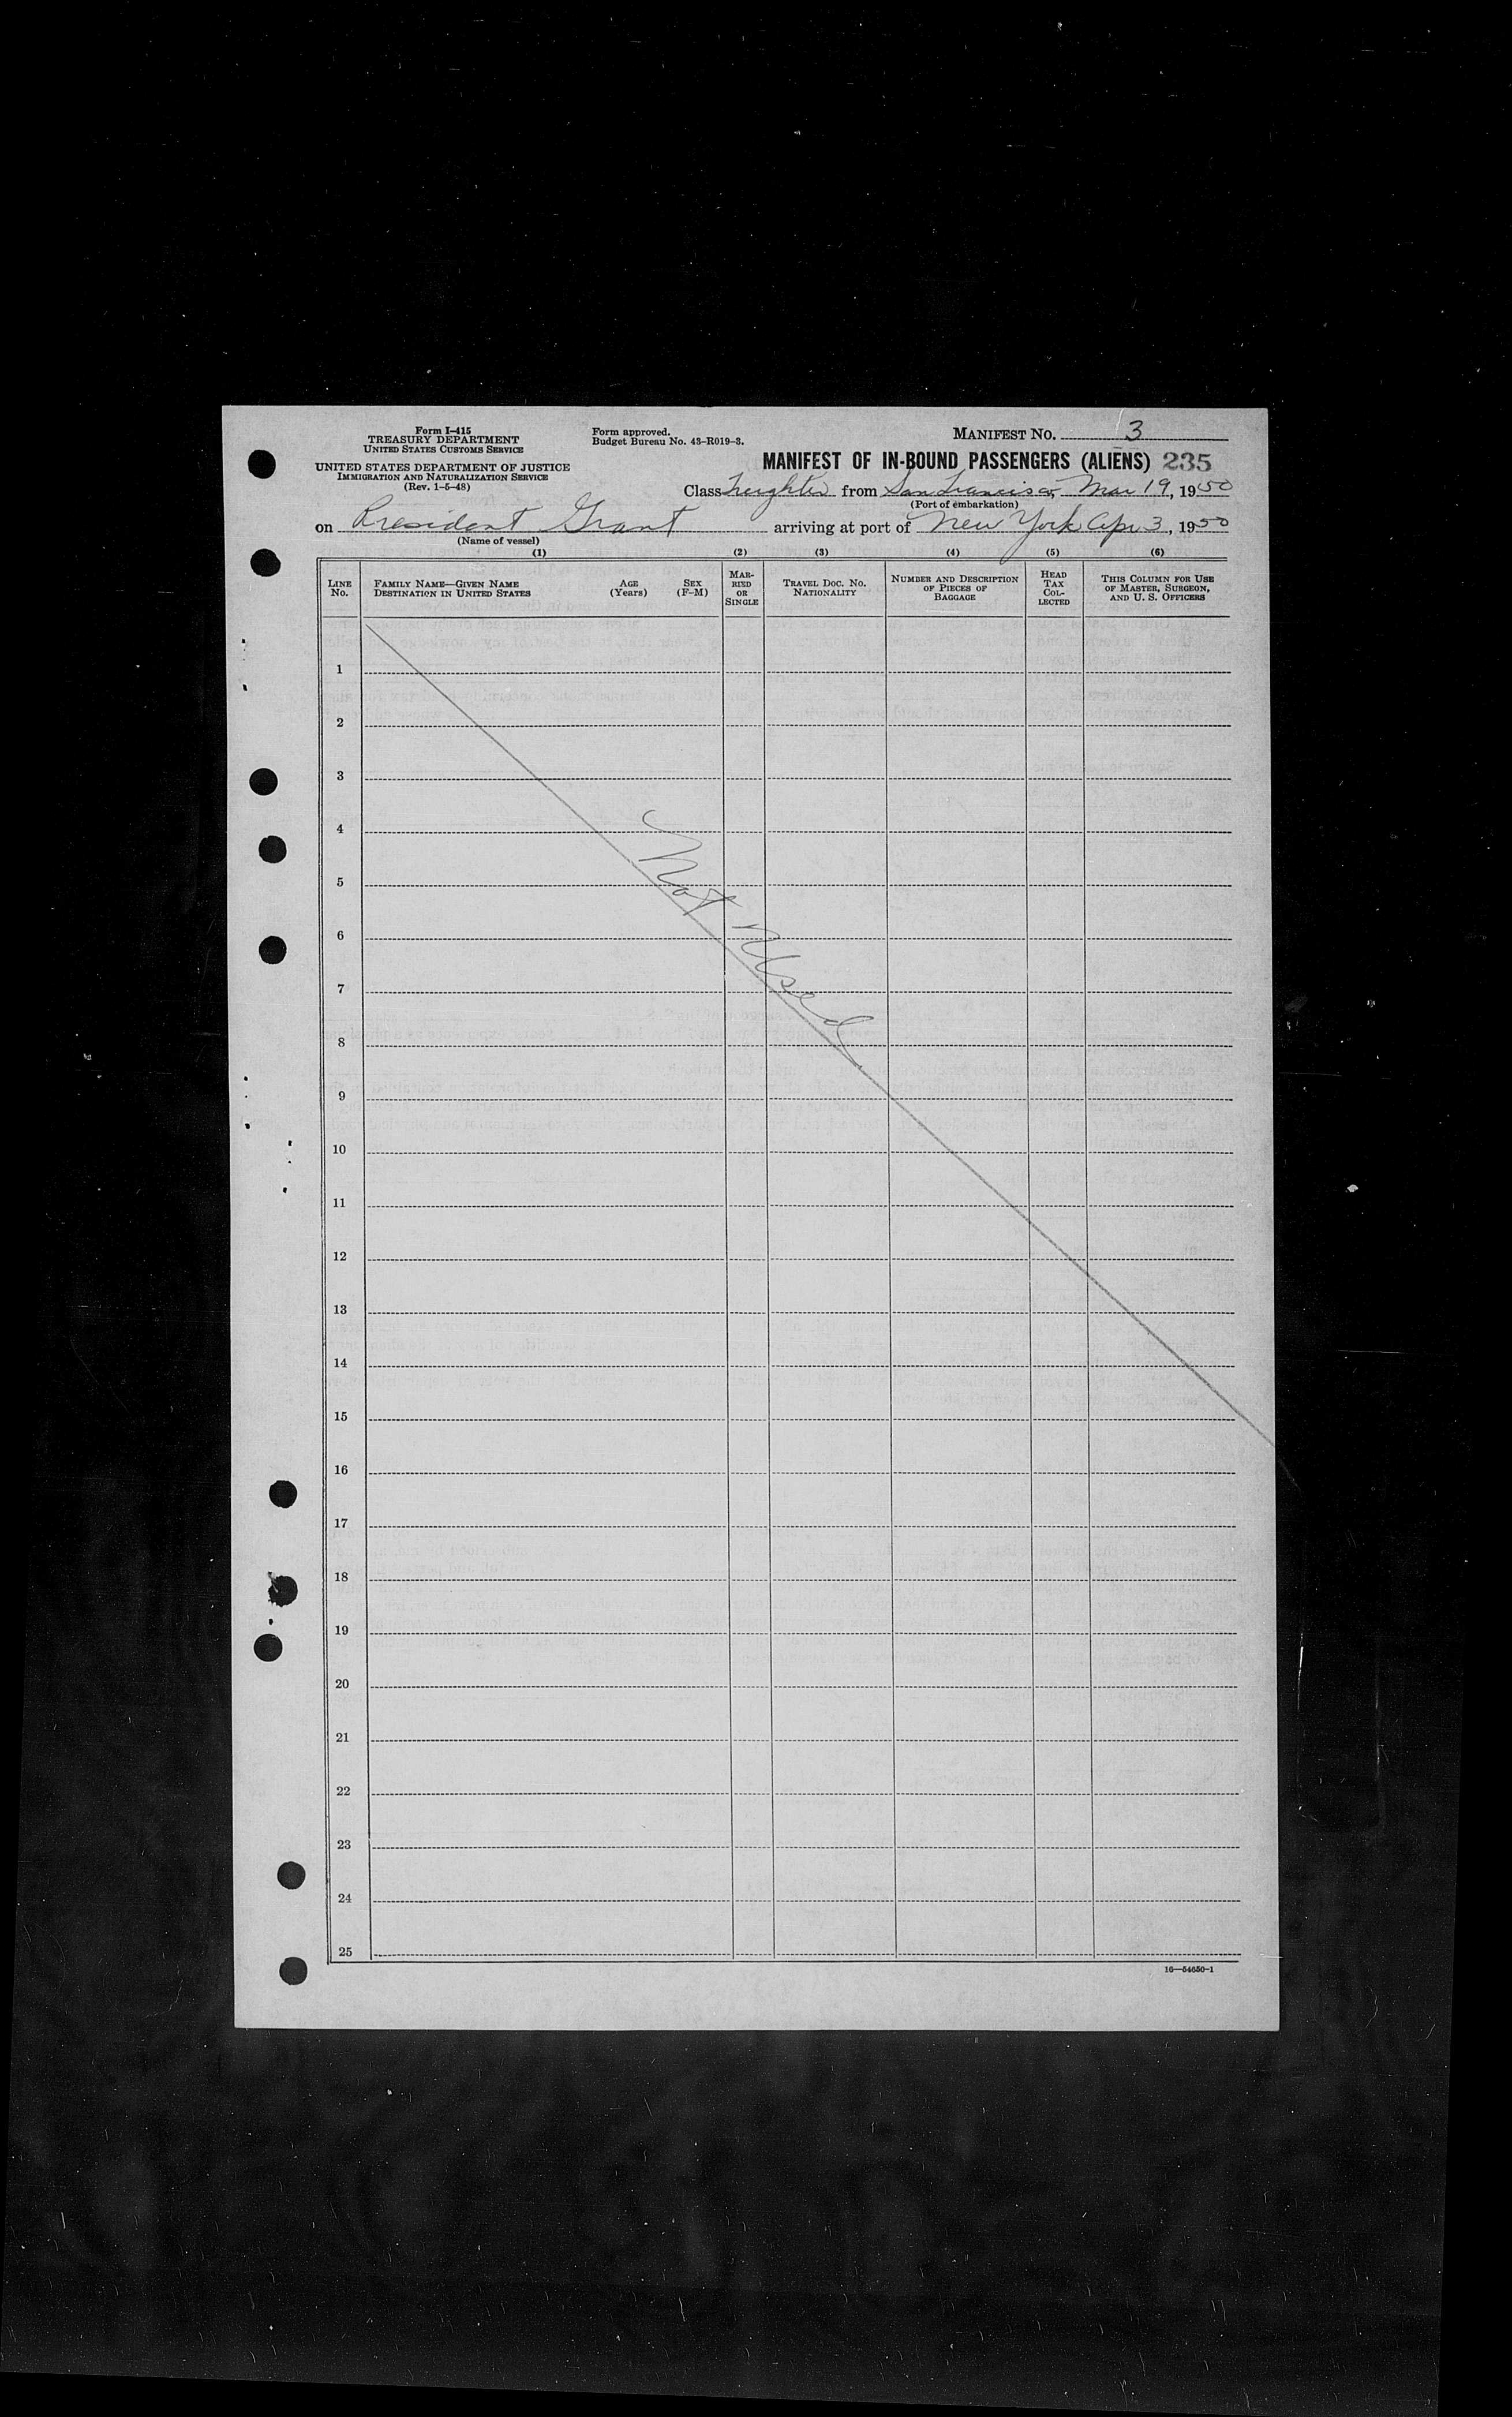 Form I-415
TREASURY DEPARTMENT
UNITED STATES CUSTOMS SERVICE
UNITED STATES DEPARTMENT OF JUSTICE
IMMIGRATION AND NATURALIZATION SERVICE
(Rev. 1-5-48)
Form approved.
Budget Bureau No. 43-R019-3.
MANIFEST NO. 3
MANIFEST OF IN-BOUND PASSENGERS (ALIENS) 235
Class Freighter from San Francisco, Mar 19, 1950
(Port of embarkation)
on President Grant arriving at port of New York Apr 3, 1950
(Name of vessel)
(1) (2) (3) (4) (5) (6)
LINE No.
FAMILY NAME—GIVEN NAME
DESTINATION IN UNITED STATES
AGE (Years)
SEX (F-M)
MARRIED OR SINGLE
TRAVEL DOC. NO.
NATIONALITY
NUMBER AND DESCRIPTION OF PIECES OF BAGGAGE
HEAD TAX COLLECTED
THIS COLUMN FOR USE OF MASTER, SURGEON, AND U. S. OFFICERS
1
2
3
4
5
6
7
8
9
10
11
12
13
14
15
16
17
18
19
20
21
22
23
24
25
Not Used
16—54650-1